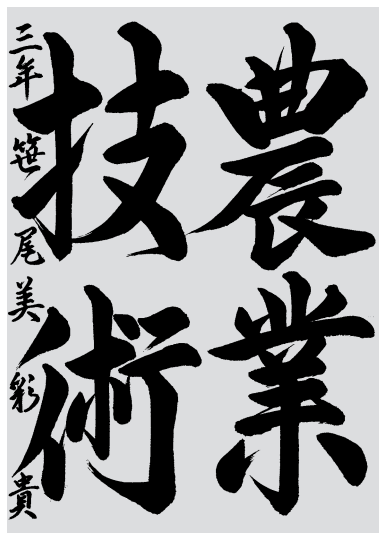 農業
技術
三年笹尾美彩貴